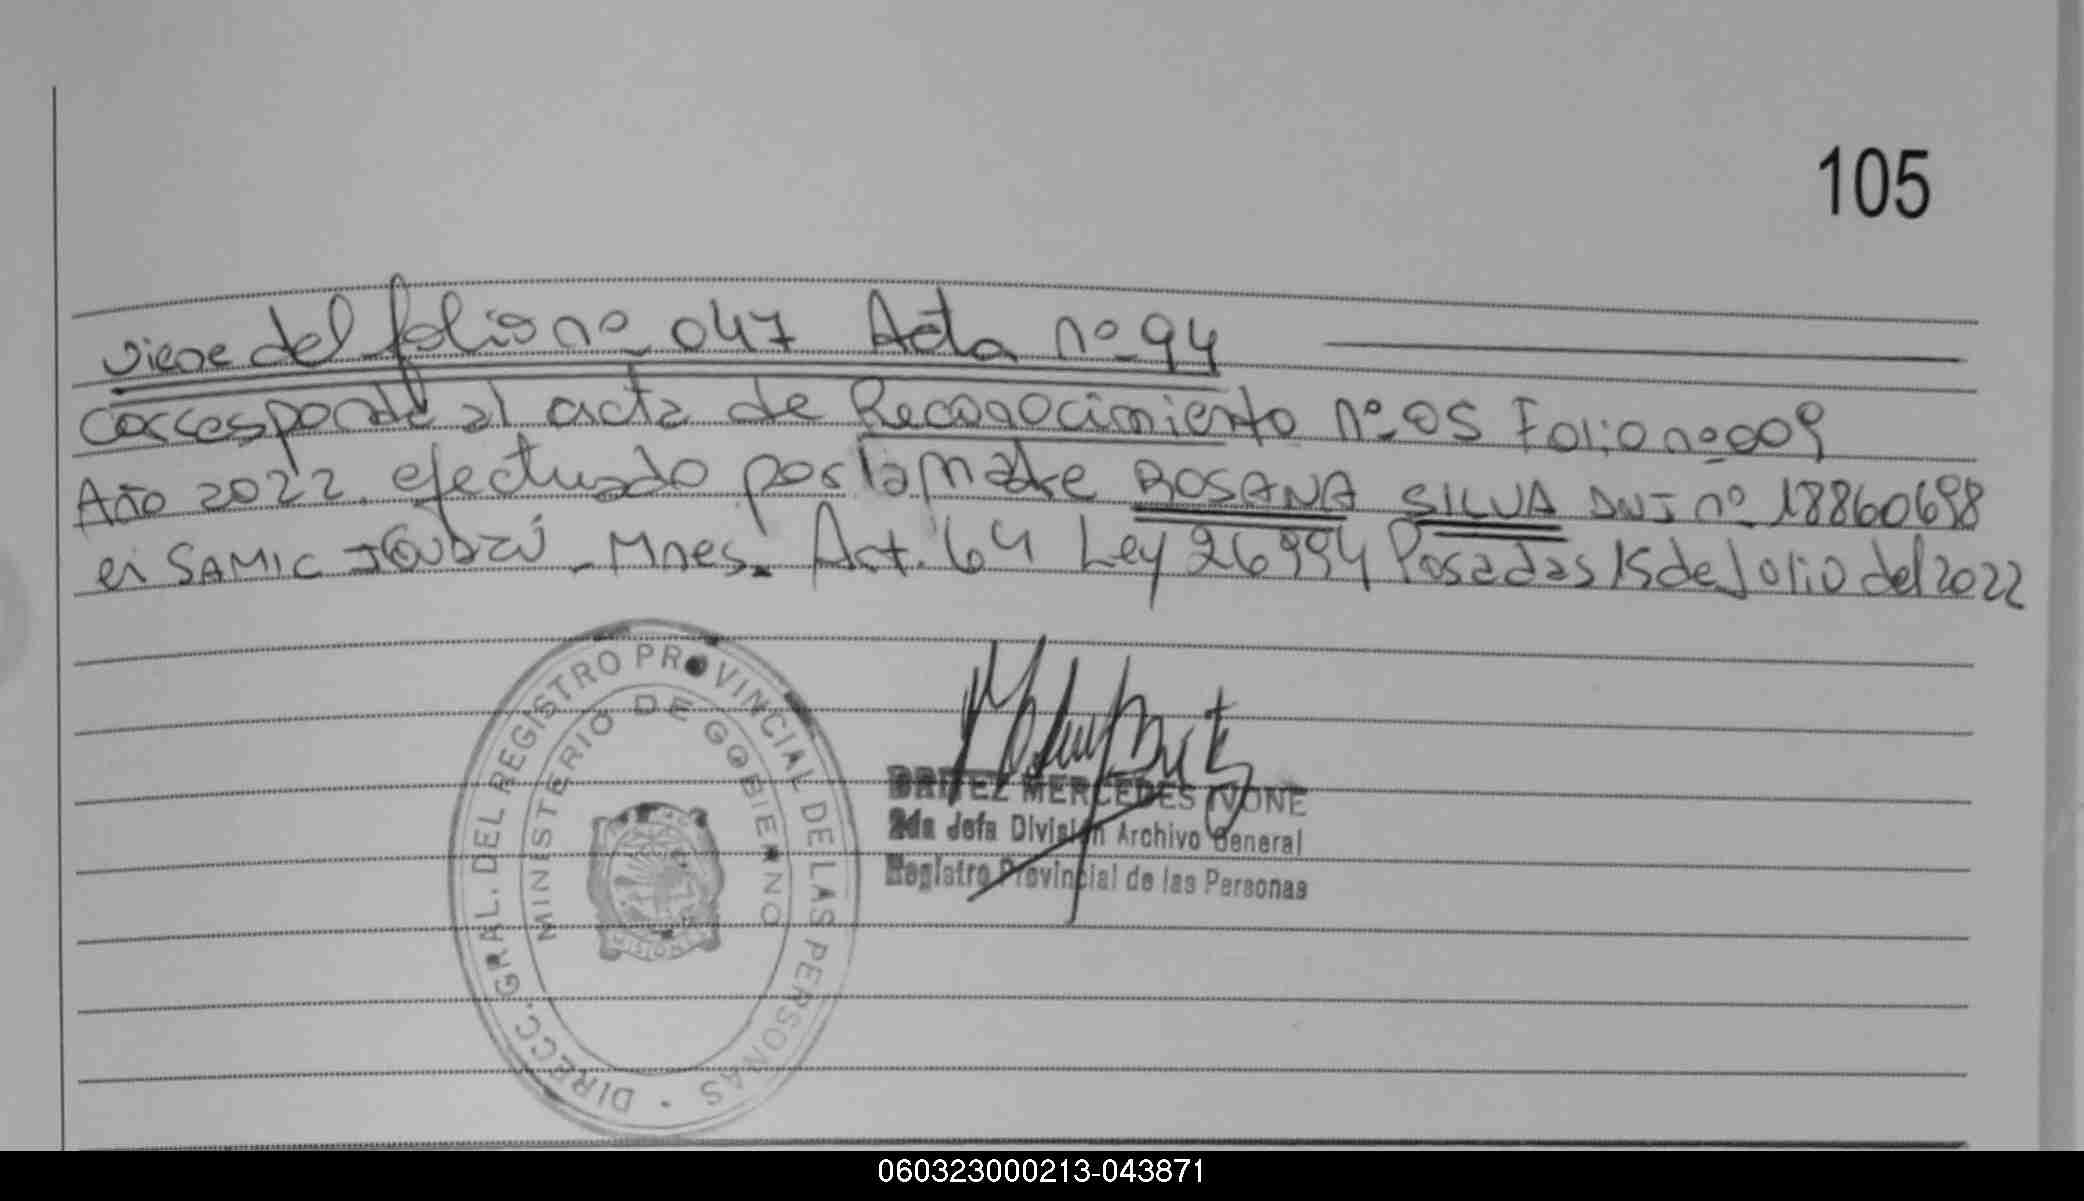 105
viene del folio nº 047 Acta nº 94
Corresponde al acta de Reconocimiento nº 05 Folio nº 009
Año 2022. efectuado por la madre ROSANA SILVA DNI nº 18860698
en SAMIC IGUAZÚ - Mnes. Art. 64 Ley 26994 Posadas 15 de Julio del 2022
DIRECC. GRAL. DEL REGISTRO PROVINCIAL DE LAS PERSONAS
MINISTERIO DE GOBIERNO
MISIONES
BRITEZ MERCEDES IVONE
2da Jefa División Archivo General
Registro Provincial de las Personas
060323000213-043871